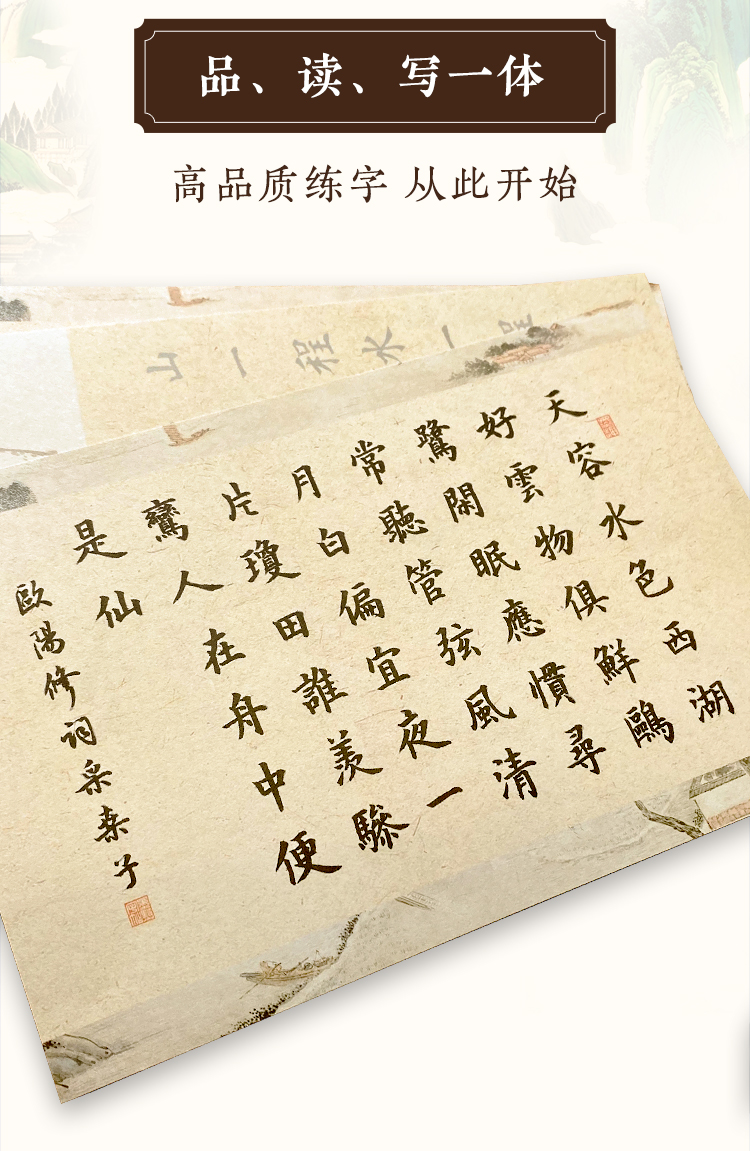 品、读、写一体
高品质练字 从此开始
山一程水一程
天容水色西湖
好雲物俱鮮鷗
鷺閑眠應慣尋
常聽管弦風清
月白偏宜夜一
片瓊田誰羨驂
鸞人在舟中便
是仙
歐陽修詞采桑子